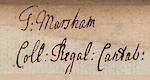 T: Marsham
Coll: Regal: Cantab: